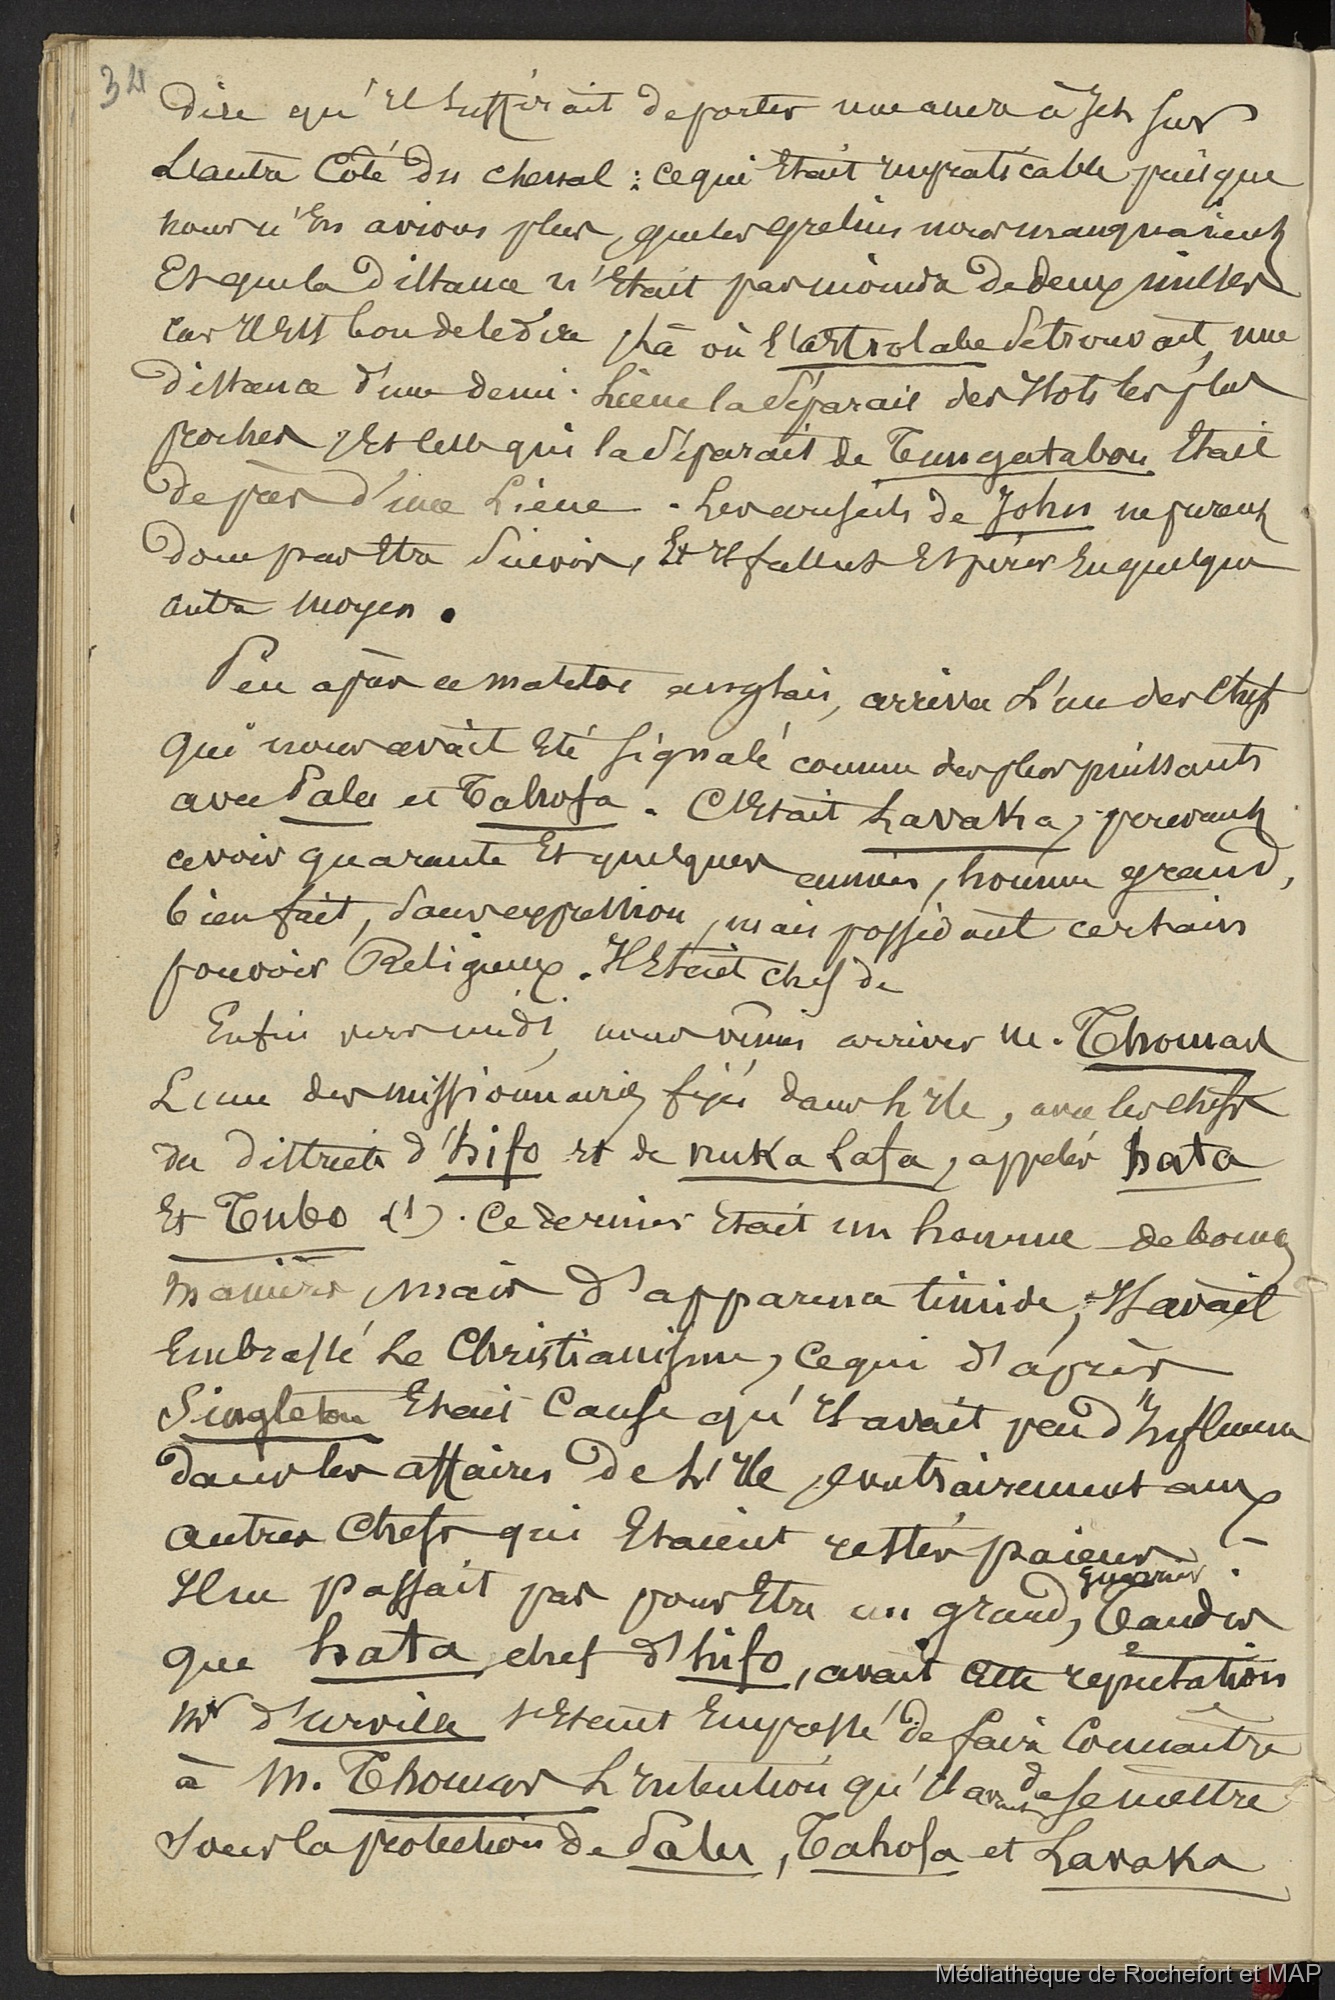 34
dire qu'il suffirait de porter une ancre à jet sur
L'autre Côté du chenal : ce qui était impraticable puisque
nous n'en avions plus, que les grelins nous manquaient
Et que la distance n'était pas moindre de deux milles
car il est bon de le dire, là où L'astrolabe se trouvait, une
distance d'une demi-Lieue la séparait des Ilots les plus
proches, et celle qui la séparait de Tungatabou Etait
de près d'une Lieue. Les conseils de John ne purent
donc pas Etre Suivis, Et il fallut Espérer En quelque
autre moyen.
Peu après ce matelot anglais, arriva L'un des Chefs
qui nous avait Eté signalé comme des plus puissants
avec Palu et Tahofa. C'Etait Lavaka, pouvant
avoir quarante Et quelques années, homme grand,
bien fait, sans expression, mais possédant certains
pouvoirs Religieux. Il Etait chef de
Enfin vers midi, nous vîmes arriver M. Thomas
L'un des missionnaires fixés dans L'Ile, avec les chefs
des districts d'hifo et de nuka Lafa, appelés hata
Et Tubo (1). Ce dernier Etait un homme de bonnes
manières, mais d'apparence timide, Il avait
Embrassé Le Christianisme, ce qui d'après
Singleton Etait Cause qu'Il avait peu d'Influence
dans les affaires de L'Ile, contrairement aux
autres Chefs qui Etaient restés païens.
Il ne passait pas pour Etre un grand guerrier, Tandis
que hata, chef d'hifo, avait cette réputation
Mr d'urville s'Etant Empressé de faire Connaître
à M. Thomas L'Intention qu'Il avait de se mettre
sous la protection de Palu, Tahofa et Lavaka
Médiathèque de Rochefort et MAP